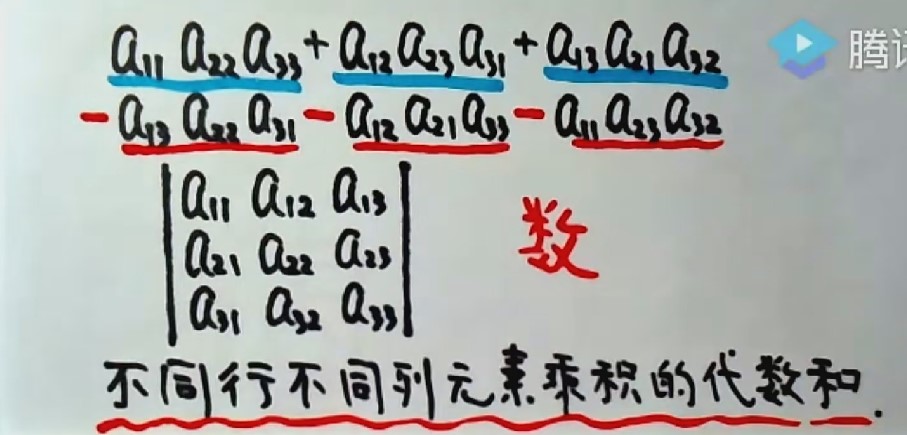 a₁₁ a₂₂ a₃₃ + a₁₂ a₂₃ a₃₁ + a₁₃ a₂₁ a₃₂
腾讯
- a₁₃ a₂₂ a₃₁ - a₁₂ a₂₁ a₃₃ - a₁₁ a₂₃ a₃₂
a₁₁ a₁₂ a₁₃
a₂₁ a₂₂ a₂₃
a₃₁ a₃₂ a₃₃
数
不同行不同列元素乘积的代数和.